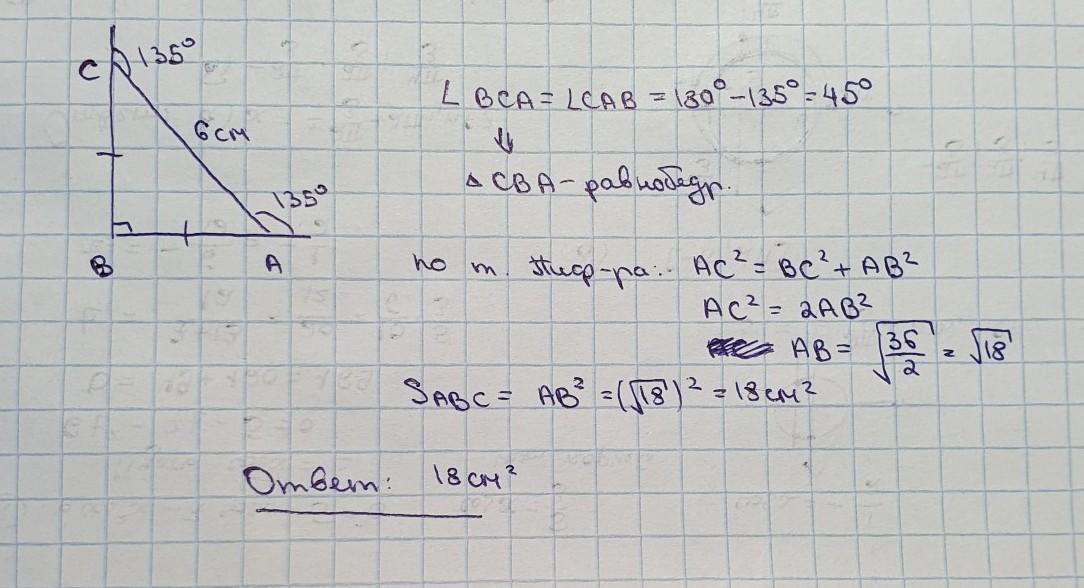 C 135°
6см
135°
B A
∠ BCA = ∠CAB = 180° - 135° = 45°
⇓
△ CBA - равнобедр.
по т. Пиф-ра: AC² = BC² + AB²
AC² = 2AB²
AB = √(36/2) = √18
S ABC = AB² = (√18)² = 18 см²
Ответ: 18 см²